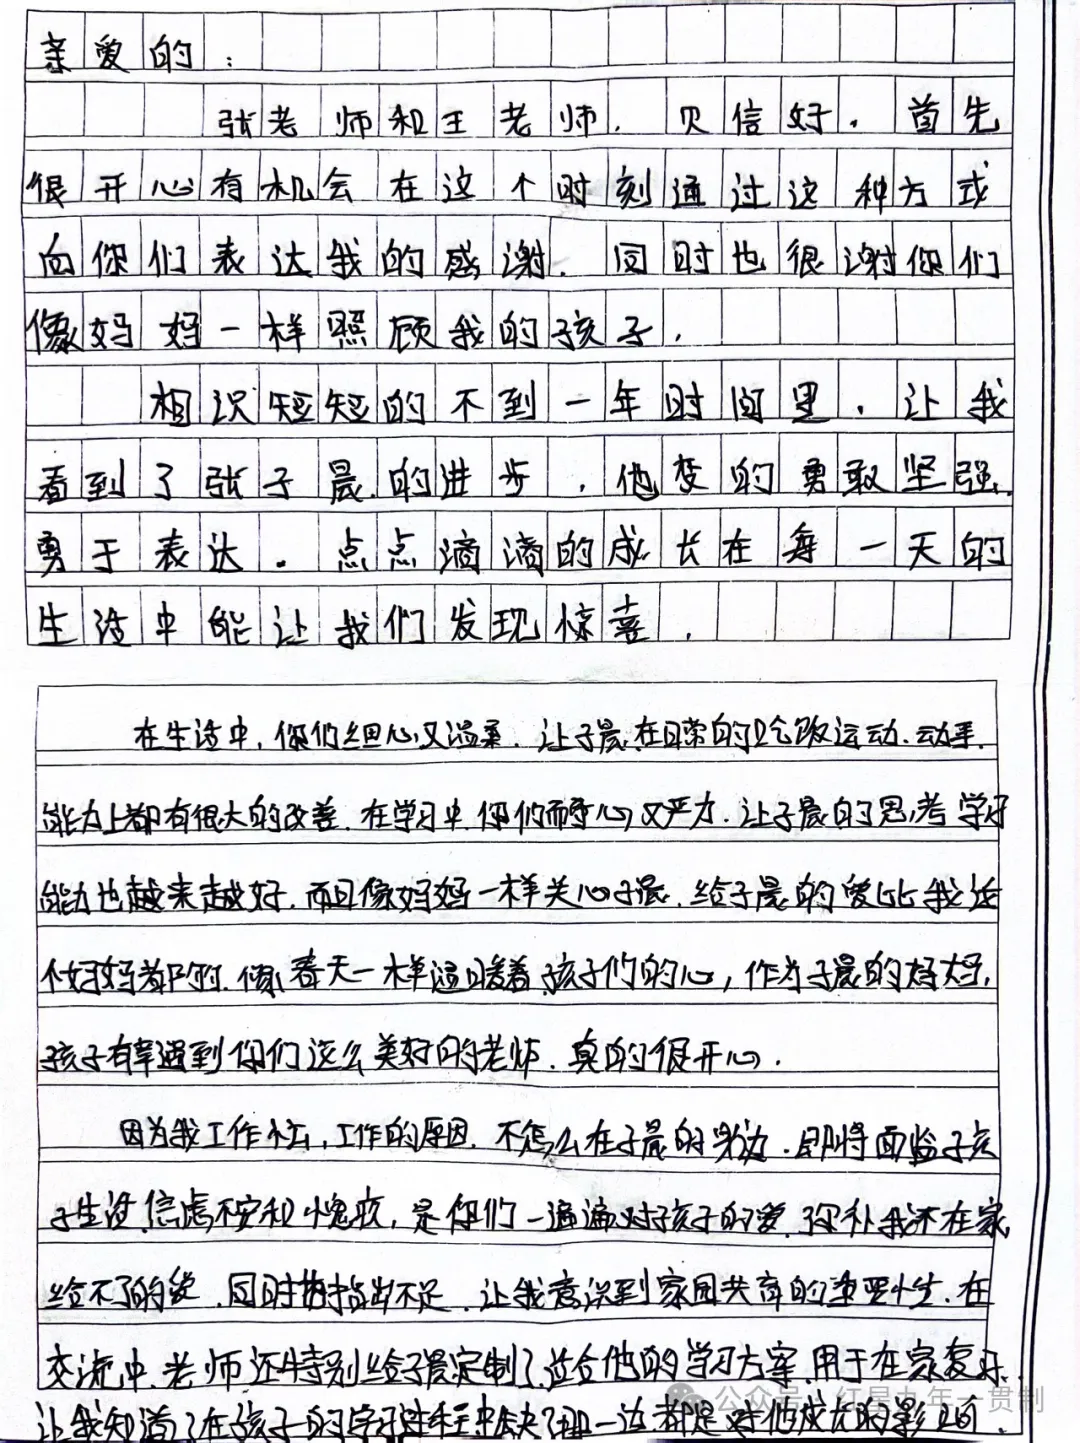 亲爱的：
张老师和王老师，见信好。首先
很开心有机会在这个时刻通过这种方式
向你们表达我的感谢。同时也很谢你们
像妈妈一样照顾我的孩子。
相识短短的不到一年时间里，让我
看到了张子晨的进步，他变的勇敢坚强
勇于表达。点点滴滴的成长在每一天的
生活中能让我们发现惊喜。
在生活中，你们细心又温柔，让子晨在日常的吃饭运动、动手
能力上都有很大的改善。在学习中你们耐心又严力，让子晨的思考学习
能力也越来越好，而且像妈妈一样关心子晨，给子晨的爱比我这
个妈妈都多，像春天一样温暖着孩子们的心，作为子晨的妈妈，
孩子有幸遇到你们这么美好的老师，真的很开心。
因为我工作，工作的原因，不怎么在子晨的身边，即将面临子孩
子生活焦虑不安和愧疚，是你们一遍遍对孩子的爱，弥补我不在家
给不了的爱，同时也指出不足，让我意识到家园共育的重要性，在
交流中，老师还特别给子晨定制了适合他的学习方案，用于在家复习
让我知道了在孩子的学习过程中缺了那一边都是对他成长的影响
公众号 红星九年一贯制